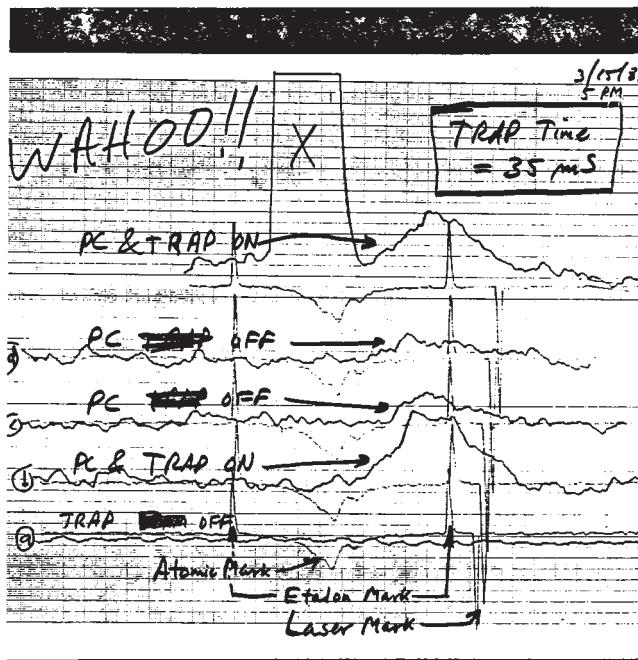 3/15/8
5 PM
WAHOO!!
X
TRAP Time
= 35 mS
PC & TRAP ON
d PC OFF
c PC OFF
b PC & TRAP ON
a TRAP OFF
Atomic Mark
Etalon Mark
Laser Mark